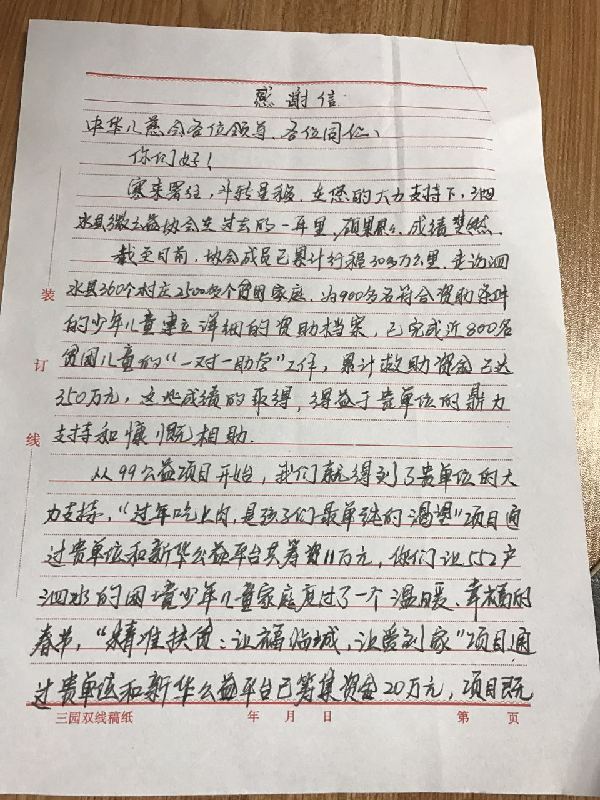 感谢信
中华儿慈会各位领导、各位同仁、
你们好！
寒来暑往，斗转星移，在您的大力支持下，泗
水县微公益协会在过去的一年里，硕果累々，成绩斐然。
截至目前，协会成员已累计行程30多万公里，走访泗
水县360个村庄2500多个贫困家庭，为900多名符合资助条件
的少年儿童建立详细的资助档案，已完成近800名
贫困儿童的“一对一助学”工作，累计救助资金已达
350万元，这些成绩的取得，得益于贵单位的鼎力
支持和慷慨相助.
从99公益项目开始，我们就得到了贵单位的大
力支持，“过年吃上肉，是孩子们最单纯的渴望”项目通
过贵单位和新华公益平台共筹资11万元，你们让552户
泗水的困境少年儿童家庭度过了一个温暖、幸福的
春节，“精准扶贫：让福临城，让爱到家”项目通
过贵单位和新华公益平台已筹集资金20万元，项目既
装
订
线
三园双线稿纸 年 月 日 第 页